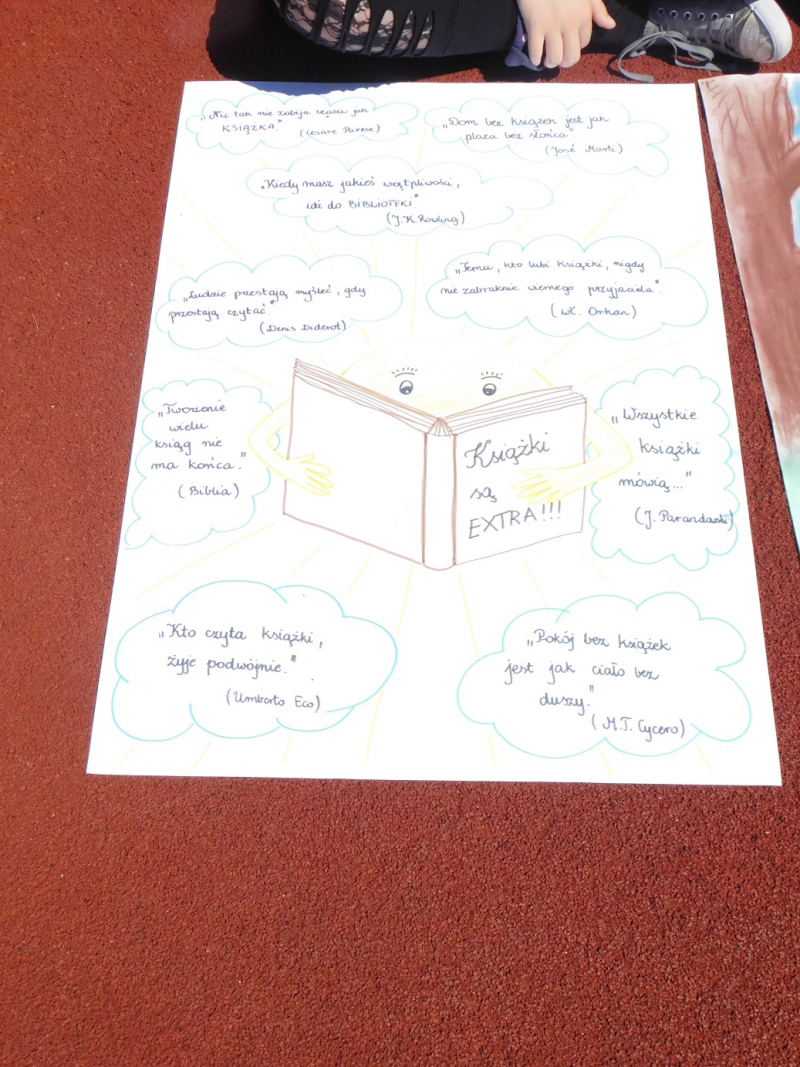 „Nic tak nie zabija czasu jak
KSIĄŻKA."
(Cesare Pavese)
„Dom bez książek jest jak
plaża bez słońca".
(José Marti)
„Kiedy masz jakieś wątpliwości,
idź do BIBLIOTEKI".
(J.K. Rowling)
„Ludzie przestają myśleć, gdy
przestają czytać."
(Denis Diderot)
„Temu, kto lubi książki, nigdy
nie zabraknie wiernego przyjaciela".
(Wł. Orkan)
„Tworzenie
wielu
ksiąg nie
ma końca."
(Biblia)
Książki
są
EXTRA!!!
„Wszystkie
książki
mówią..."
(J. Parandowski)
„Kto czyta książki,
żyje podwójnie."
(Umberto Eco)
„Pokój bez książek
jest jak ciało bez
duszy."
(M.T. Cycero)